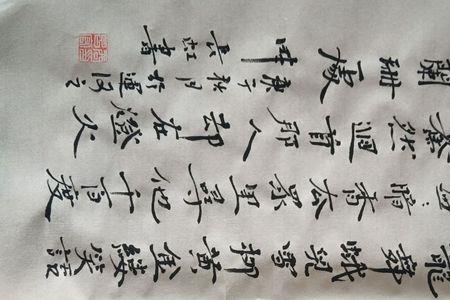 龍舞蛾兒雪柳黃金縷笑語
盈:暗香去眾里尋他千百度
驀然迴首那人却在燈火
闌珊處
庚子秋月於運河